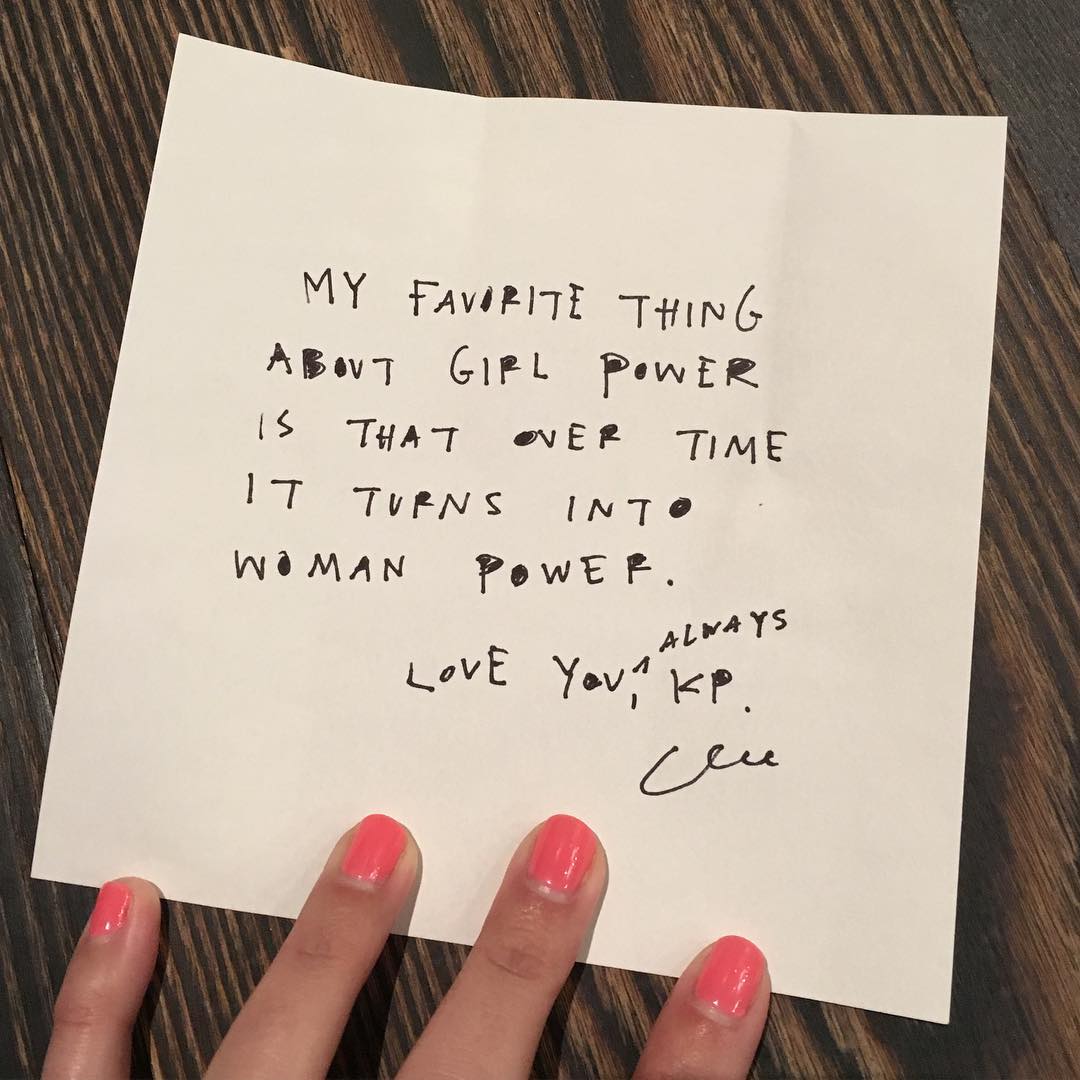 MY FAVORITE THING
ABOUT GIRL POWER
IS THAT OVER TIME
IT TURNS INTO
WOMAN POWER.
LOVE YOU, ^ALWAYS KP.